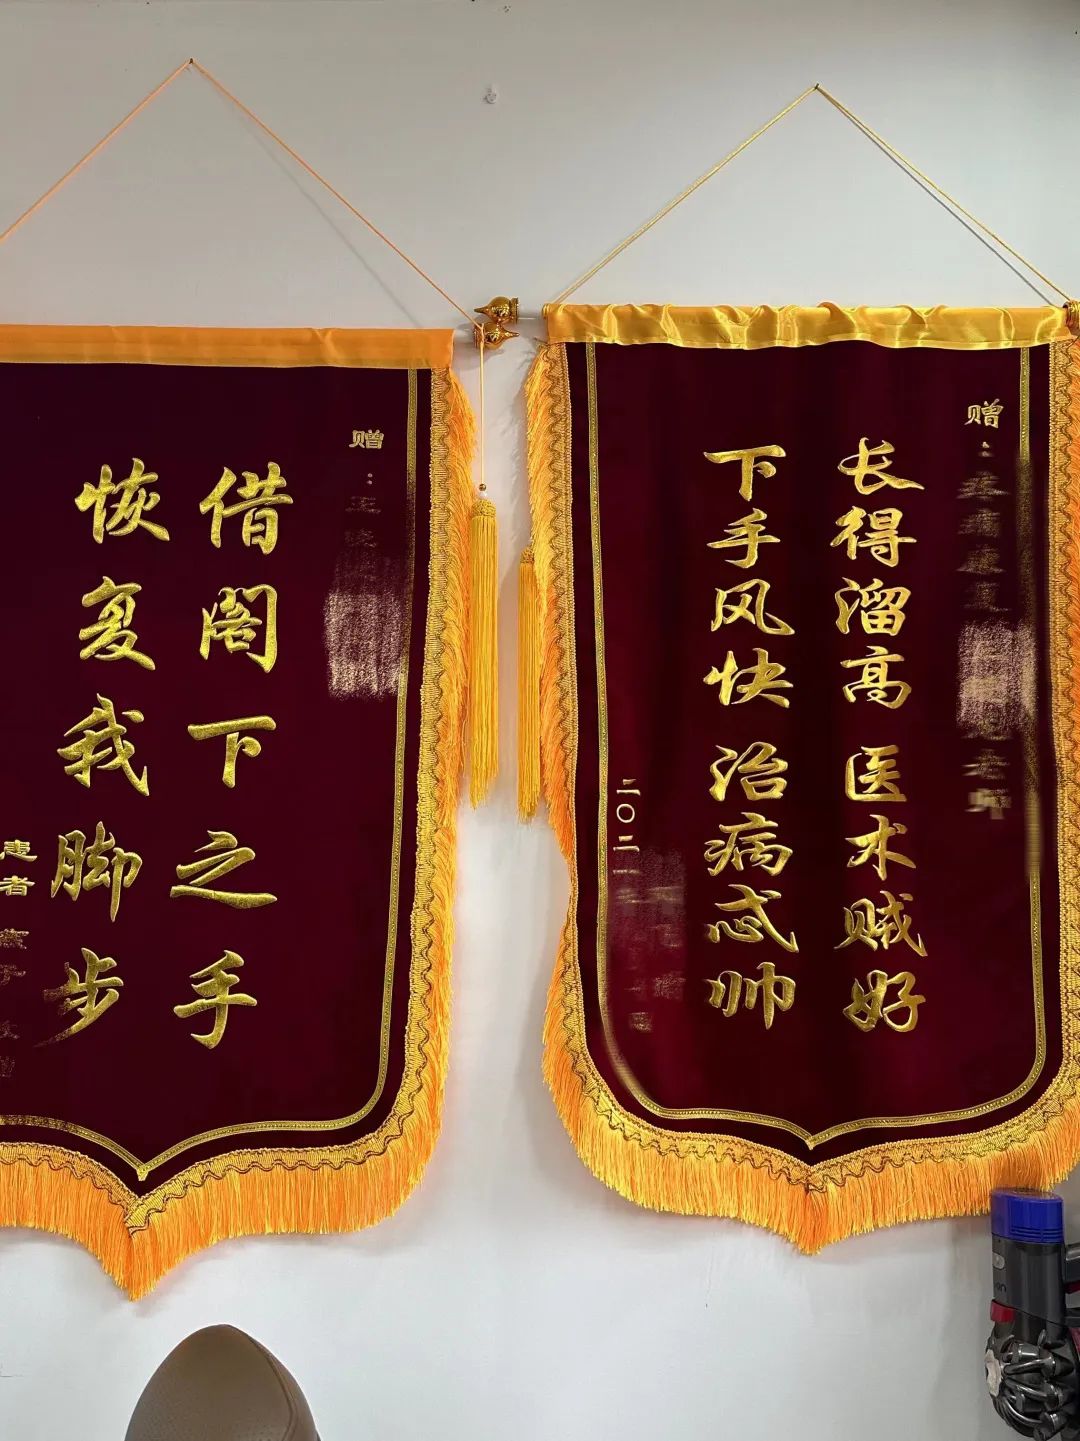 赠：
长得溜高 医术贼好
下手风快 治病忒帅
二〇二
赠：王
借阁下之手
恢复我脚步
患者